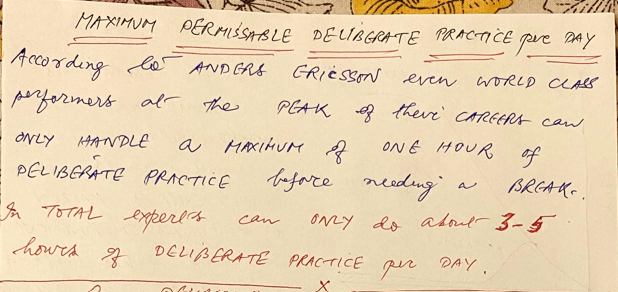 MAXIMUM PERMISSABLE DELIBERATE PRACTICE per DAY
According to ANDERS ERICSSON even WORLD CLASS
performers at the PEAK of their CAREERS can
ONLY HANDLE a MAXIMUM of ONE HOUR of
DELIBERATE PRACTICE before needing a BREAK.
In TOTAL experts can ONLY do about 3-5
hours of DELIBERATE PRACTICE per DAY.
x